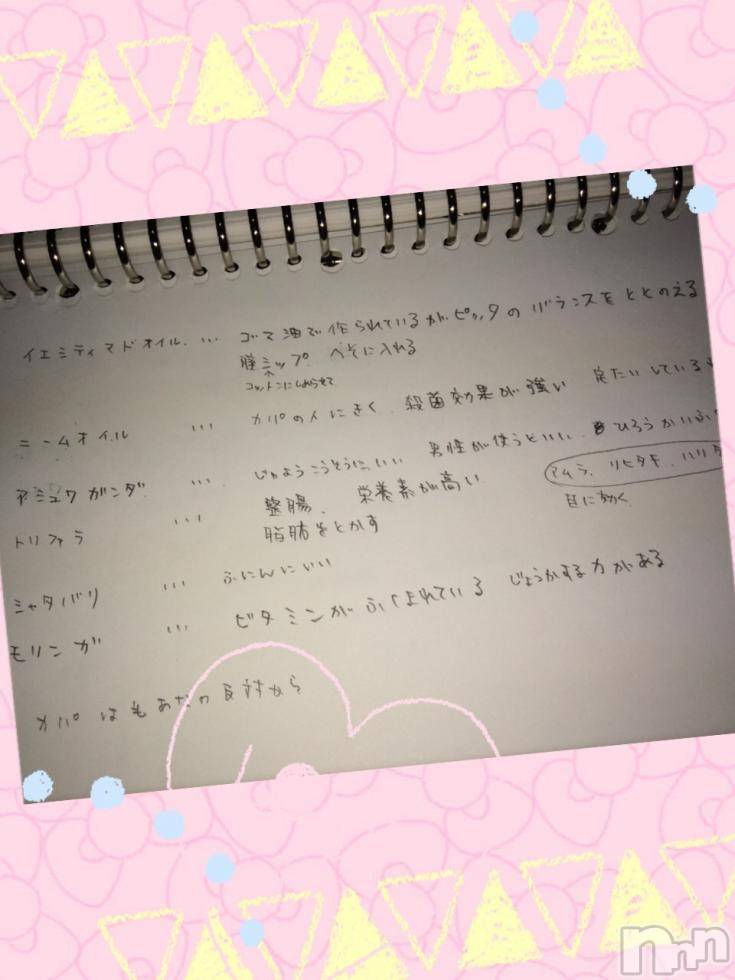 イエミティマドオイル … ゴマ油で作られているがピッタのバランスをととのえる
膣ミップ. へそに入れる
コットンにしめらせて
ニームオイル … カパの人にきく. 殺菌効果が強い 定たいしている
アシュワガンダ … じようこうそうにいい 男性が使うといい. ひろうかいふ
トリファラ … 整腸. 栄養素が高い アムラ. リヒタキ. ハリタ
脂肪をとかす 目に効く
シャタバリ … ふにんにいい
モリンガ … ビタミンがふくまれている じょうかする力がある
カパは毛あなの反対から
nnn